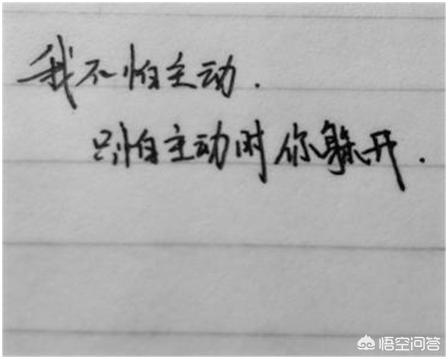 我不怕主动.
只怕主动时你躲开.
悟空问答